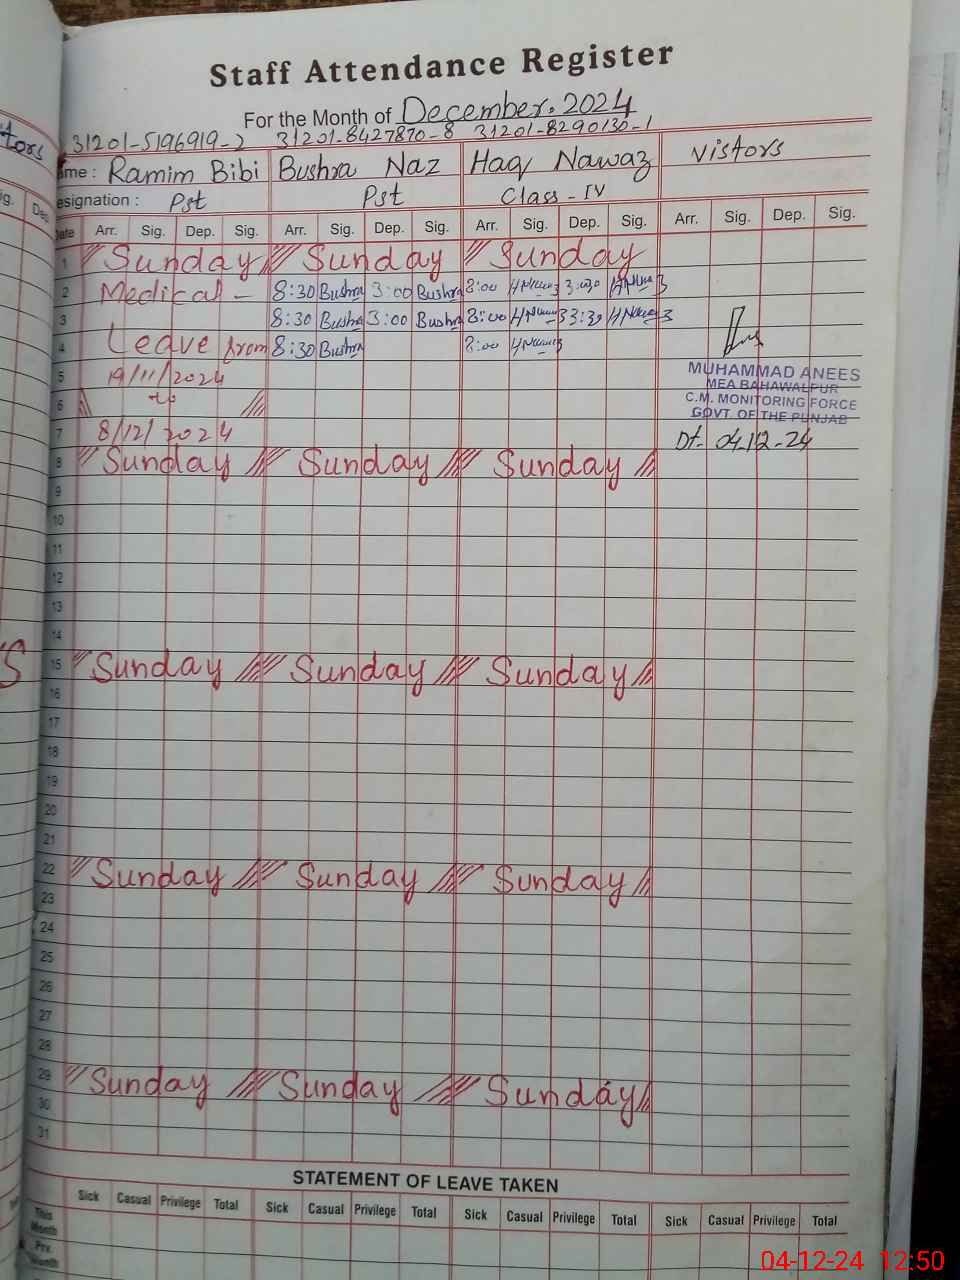 Staff Attendance Register
For the Month of December. 2024
31201-5196919-2 31201-8427870-8 31201-8290130-1
tors
ame : Ramim Bibi Bushra Naz Haq Nawaz Vistors
esignation : Pst Pst Class - IV
ig. Dep.
Date Arr. Sig. Dep. Sig. Arr. Sig. Dep. Sig. Arr. Sig. Dep. Sig. Arr. Sig. Dep. Sig.
1 Sunday Sunday Sunday
2 Medical - 8:30 Bushra 3:00 Bushra 8:00 HNawaz HNawaz
3 8:30 Bushra 3:00 Bushra 8:00 HNawaz 3:30 HNawaz
4 Leave from 8:30 Bushra 8:00 HNawaz
5 19/11/2024 MUHAMMAD ANEES
MEA BAHAWALPUR
6 C.M. MONITORING FORCE
GOVT. OF THE PUNJAB
7 8/12/2024 Dt- 04.12-24
8 Sunday Sunday Sunday
9
10
11
12
13
14
15 Sunday Sunday Sunday
16
17
18
19
20
21
22 Sunday Sunday Sunday
23
24
25
26
27
28
29 Sunday Sunday Sunday
30
31
STATEMENT OF LEAVE TAKEN
Sick Casual Privilege Total Sick Casual Privilege Total Sick Casual Privilege Total Sick Casual Privilege Total
This Month
Prv. Month
04-12-24 12:50